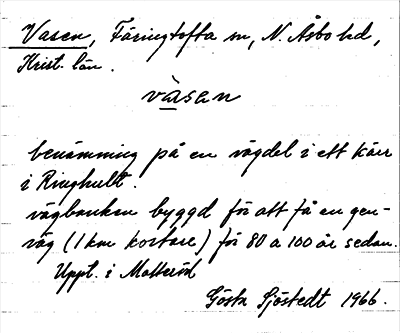 Vasen, Färingtofta sn, N. Åsbo hd,
Krist. län.
vàsan
benämning på en vägdel i ett kärr
i Ringhult.
vägbanken byggd för att få en gen-
väg (1 km kortare) för 80 a 100 år sedan.
Uppt. i Matteröd
Gösta Sjöstedt 1966.